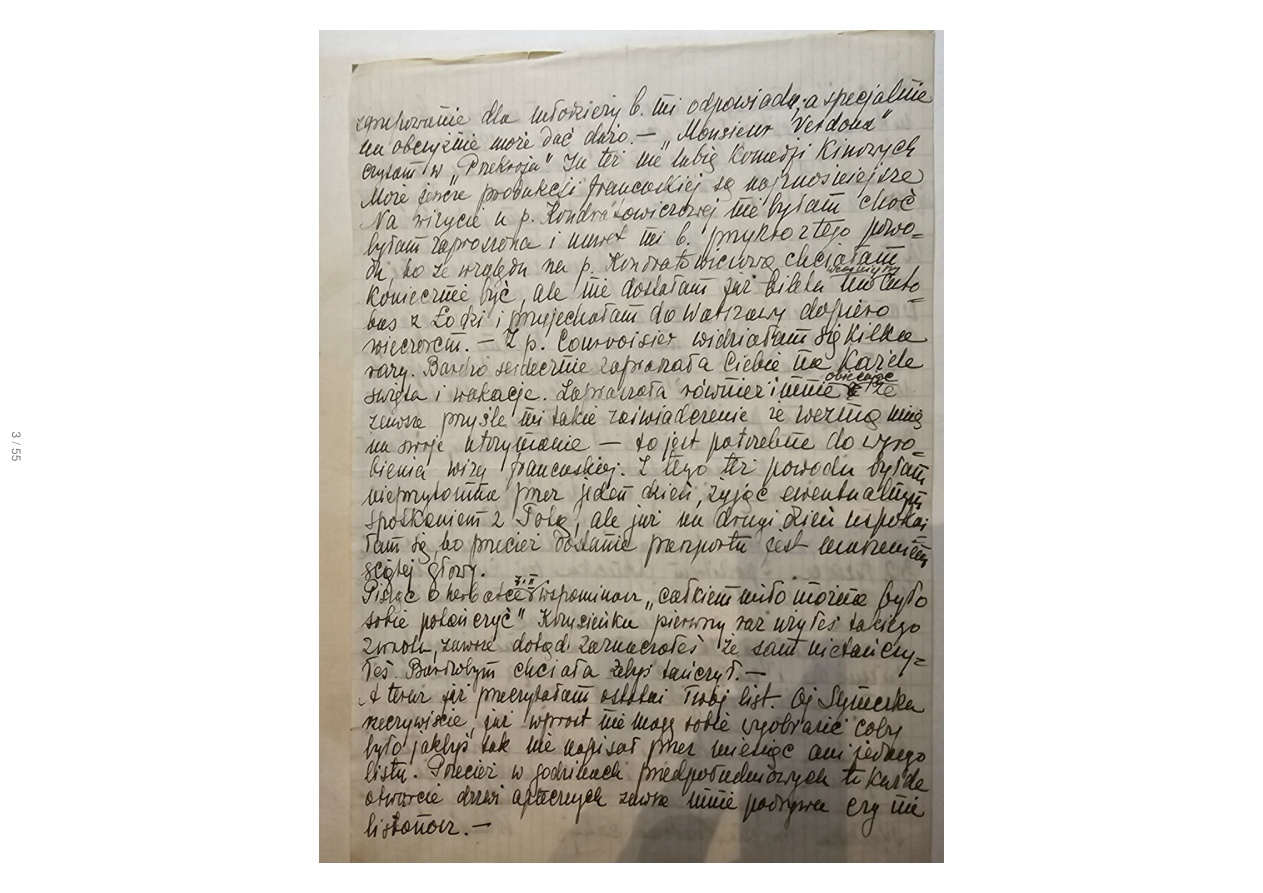 zgrupowanie dla młodzieży b. mi odpowiada, a specjalnie
na obczyźnie może dać dużo. — „Monsieur Verdoux"
czytam w „Przekroju" Ja też nie lubię Komedji Kinowych
Może jeszcze produkcji francuskiej są najznośniejsze
Na wizycie u p. Kondratowiczowej nie byłam choć
byłam zaproszona i nawet mi b. przykro z tego powo-
du, bo ze względu na p. Kondratowiczową chciałam
koniecznie być, ale nie dostałam już biletu na auto-
wcześniejszy
bus z Łodzi i przyjechałam do Warszawy dopiero
wieczorem. — Z p. Courvoisier widziałam się kilka
razy. Bardzo serdecznie zapraszała Ciebie na każde
święta i wakacje. Zapraszała również i mnie że
obiecując
zawsze przyśle mi takie zaświadczenie że wezmą mnie
na swoje utrzymanie — to jest potrzebne do wyro-
bienia wizy francuskiej. Z tego też powodu byłam
nieprzytomna przez jeden dzień, żyjąc ewentualnym
spotkaniem z Tobą, ale już na drugi dzień uspokoi
łam się, bo przecież dostanie paszportu jest marzeniem
ściętej głowy.
Pisząc o herbatce 7.II wspominasz „całkiem miło można było
sobie potańczyć" Krzysieńku pierwszy raz użyłeś takiego
zwrotu, zawsze dotąd zaznaczałeś że sam nie tańczy-
łeś. Bardzobym chciała żebyś tańczył. —
A teraz już przeczytałam ostatni Twój list. Oj Syneczku
rzeczywiście, już wprost nie mogę sobie wyobrazić coby
było jakbyś tak nie napisał przez miesiąc ani jednego
listu. Przecież w godzinach przedpołudniowych to każde
otwarcie drzwi aptecznych zawsze mnie podrywa czy nie
listonosz. —
3 / 55